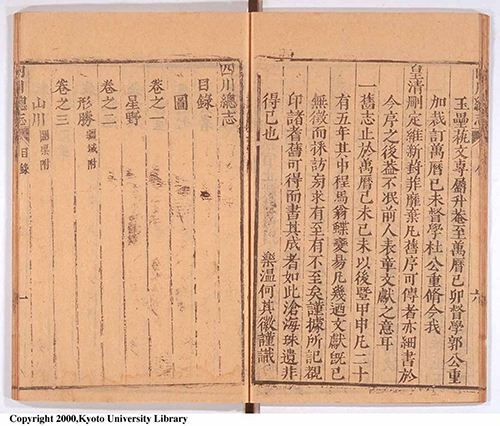 玉壘藝文專屬升菴至萬曆己卯督學郭公重
加裁訂萬曆己未督學杜公重脩今我
皇清刪定維新葑菲靡棄凡舊序可傳者亦細書於
今序之後蓋不泯前人表章文獻之意耳
一舊志止於萬曆己未己未以後暨甲申凡二十
有五年其中程馬翁蝶變易凡幾迺文獻旣已
無徵而採訪勿求有至有不至矣謹據所記覩
印諸耆舊可得而書其成者如此滄海珠遺非
得已也
樂溫何其徽謹識
六
四川總志
目錄
圖
卷之一
星野
卷之二
形勝 疆域附
卷之三
山川 關梁附
川總志
目錄
一
Copyright 2000,Kyoto University Library